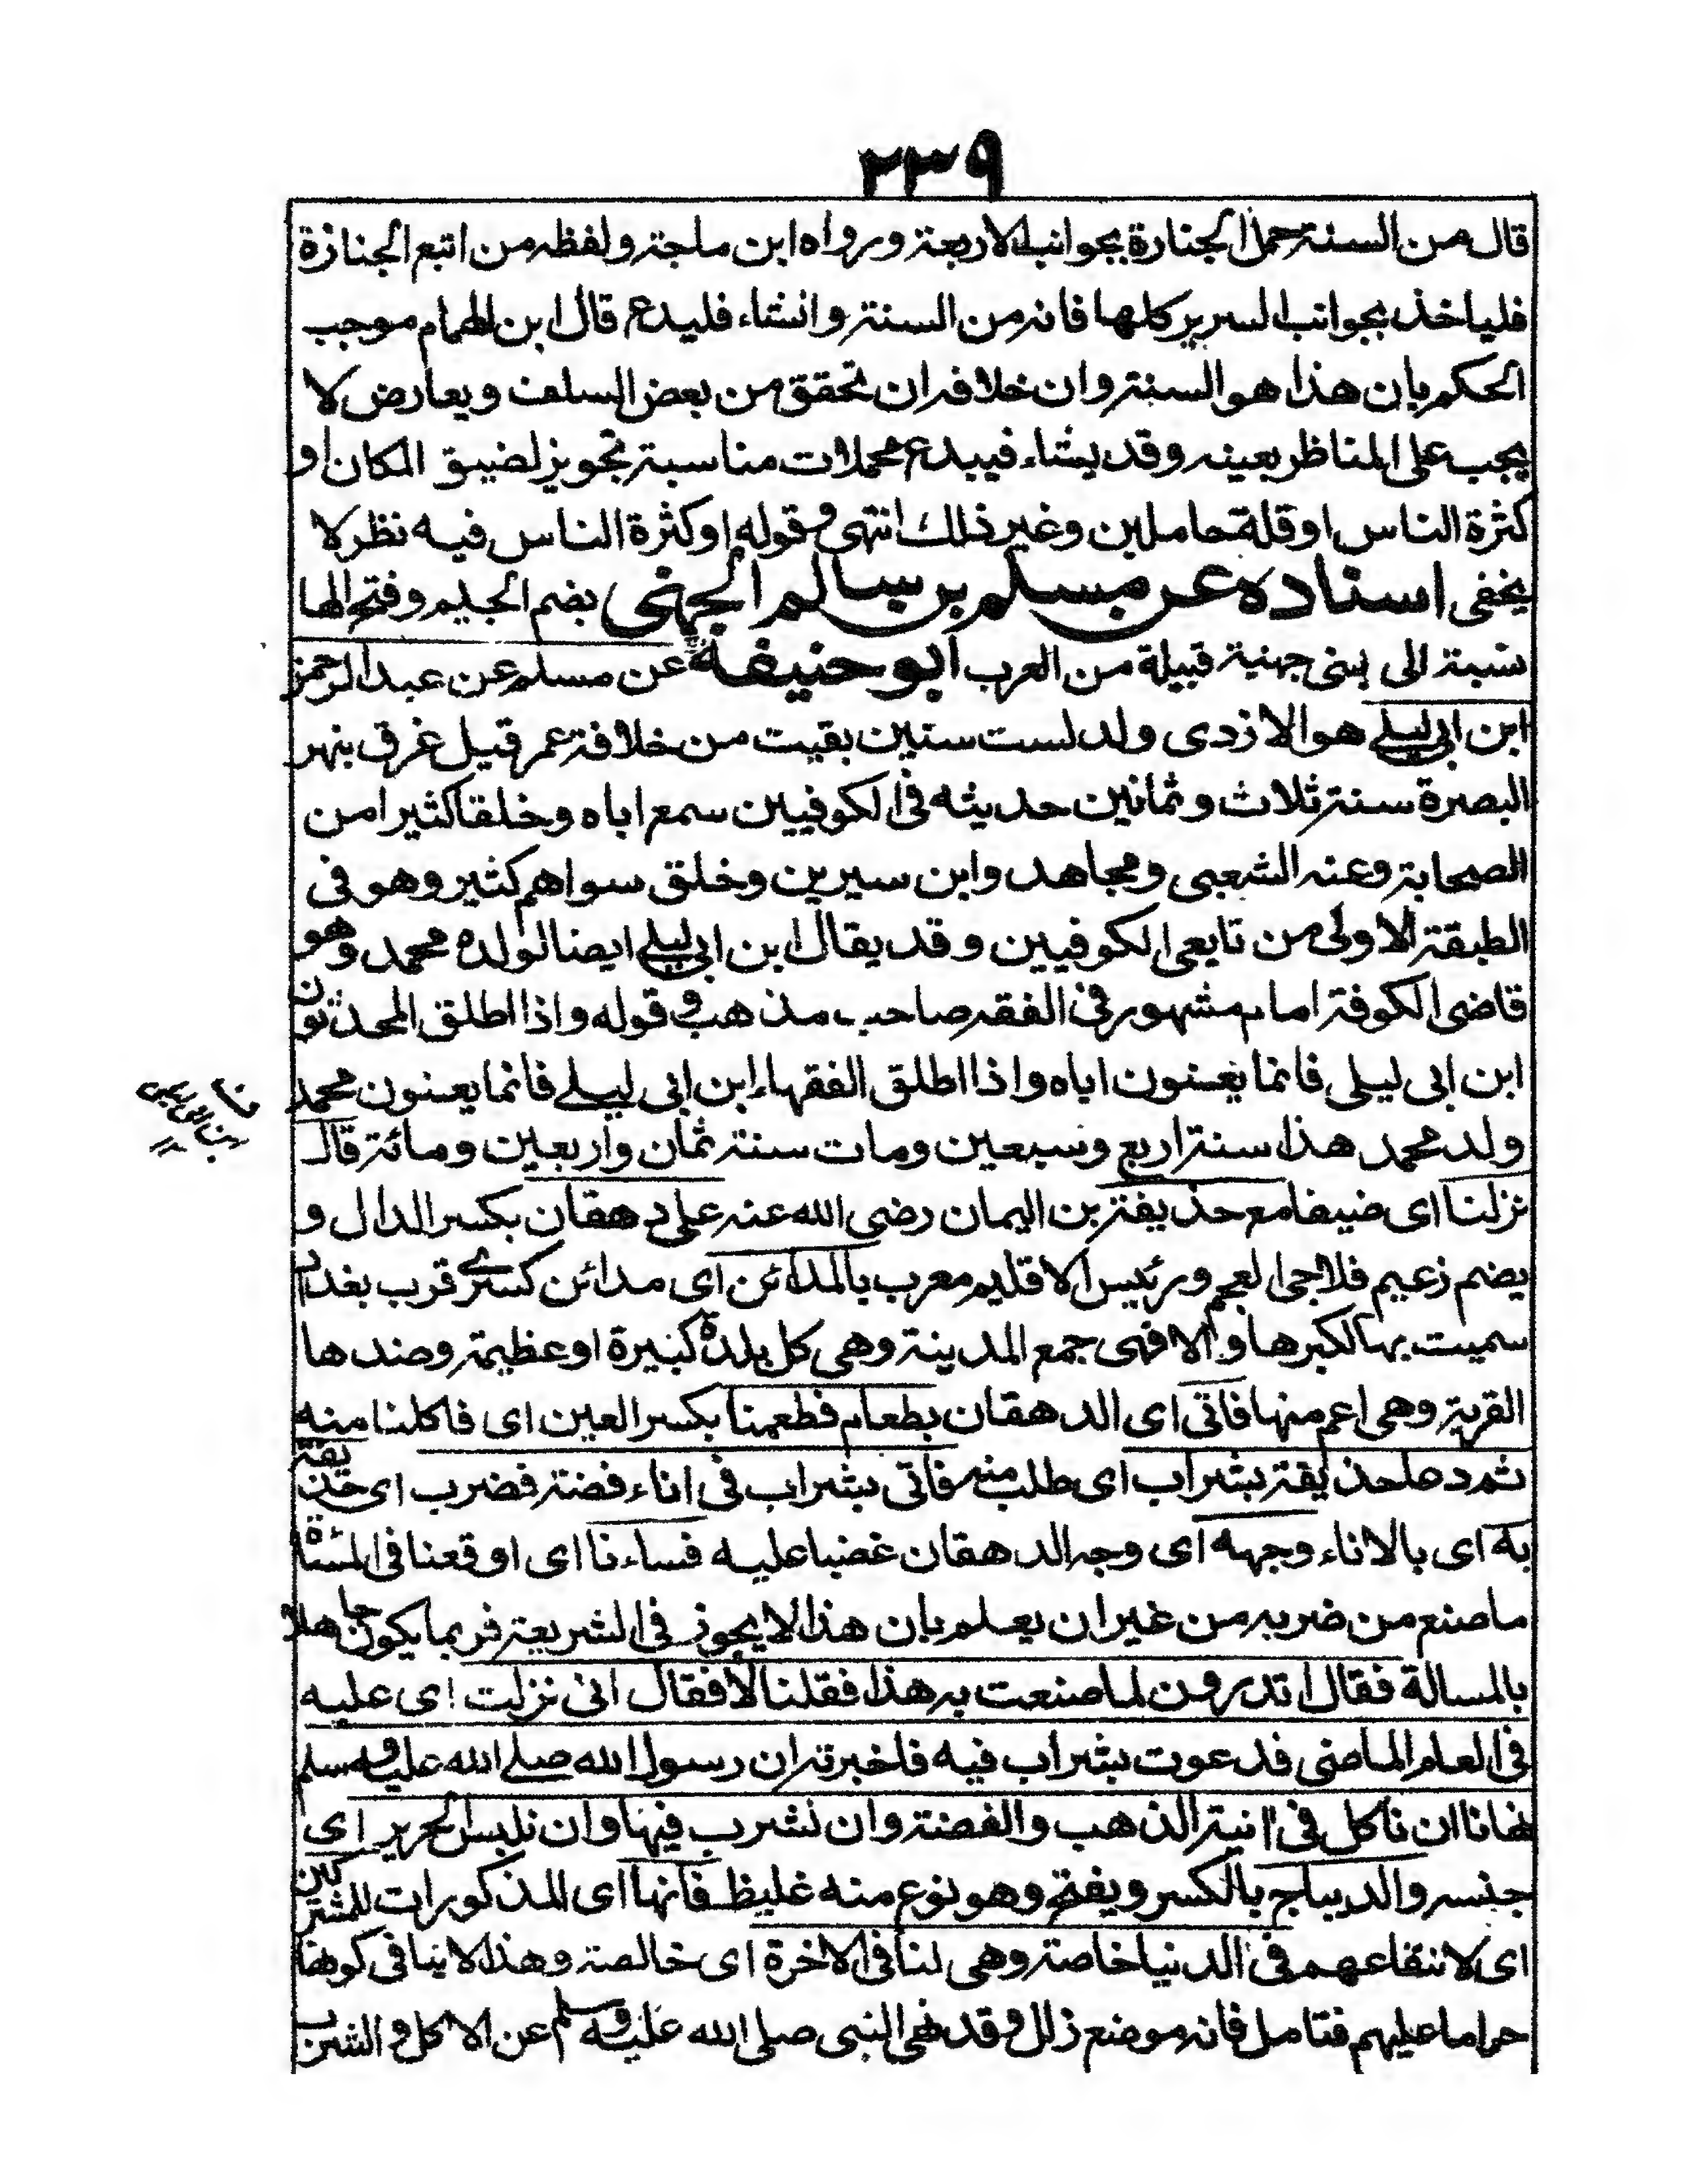 ٢٣٩
قال من السنة حمل الجنازة بجوانبها الاربعة ورواه ابن ماجة ولفظه من اتبع الجنازة
فلياخذ بجوانب السرير كلها فانه من السنة وان شاء فليدع قال ابن الهمام موجب
الحكم بان هذا هو السنة وان خلافه ان تحقق من بعض السلف ويعارض لا
يجب على المناظر بعينه وقد يشاء فيبدع محملات مناسبة تجويز لضيق المكان او
كثرة الناس او قلة حاملين وغير ذلك انتهى وقوله او كثرة الناس فيه نظر لا
يخفى اسناده عن مسلم بن سالم الجهني بضم الجيم وفتح الها
نسبة الى بنى جهنية قبيلة من العرب ابو حنيفة عن مسلم عن عبد الرحمن
ابن ابي ليلى هو الازدى ولد لست سنين بقيت من خلافة عمر قيل غرق بنهر
البصرة سنة ثلاث وثمانين حديثه في الكوفيين سمع اباه وخلقا كثيرا من
الصحابة وعنه الشعبى ومجاهد وابن سيرين وخلق سواهم كثير وهو فى
الطبقة الاولى من تابعى الكوفيين وقد يقال ابن ابي ليلى ايضا لولده محمد وهو
قاضى الكوفة امام مشهور فى الفقه صاحب مذهب وقوله واذا اطلق المحدثون
ابن ابى ليلى فانما يعنون اباه واذا اطلق الفقهاء ابن ابى ليلى فانما يعنون محمد
ولد محمد هذا سنة اربع وسبعين ومات سنة ثمان واربعين ومائة قال
نزلنا اى ضيفا مع حذيفة بن اليمان رضى الله عنه على دهقان بكسر الدال و
يضم زعيم فلاحى العجم ورئيس الاقليم معرب بالمدائن اى مدائن كسرى قرب بغداد
سميت بها لكبرها والا فهى جمع المدينة وهى كل بلدة كبيرة او عظيمة وضدها
القرية وهى اعم منها فاتى اى الدهقان بطعام فطعمنا بكسر العين اى فاكلنا منه
ثم دعا حذيفة بشراب اى طلب منه فاتى بشراب فى اناء فضة فضرب اى حذيفة
به اى بالاناء وجهه اى وجه الدهقان غضبا عليه فساءنا اى اوقعنا فى المساة
ما صنع من ضربه من غير ان يعلم بان هذا لا يجوز فى الشريعة فربما يكون جاهلا
بالمسالة فقال اتدرون لما صنعت به هذا فقلنا لا فقال انى نزلت اى عليه
فى العام الماضى فدعوت بشراب فيه فاخبرته ان رسول الله صلى الله عليه وسلم
نهانا ان ناكل فى انية الذهب والفضة وان نشرب فيها وان نلبس الحرير اى
جنسه والديباج بالكسر ويفتح وهو نوع منه غليظ فانها اى المذكورات للمشركين
اى لانتفاعهم فى الدنيا خاصة وهى لنا فى الاخرة اى خالصة وهذا لا ينافى كونها
حراما عليهم فتامل فانه موضع زلل وقد نهى النبى صلى الله عليه وسلم عن الاكل والشرب